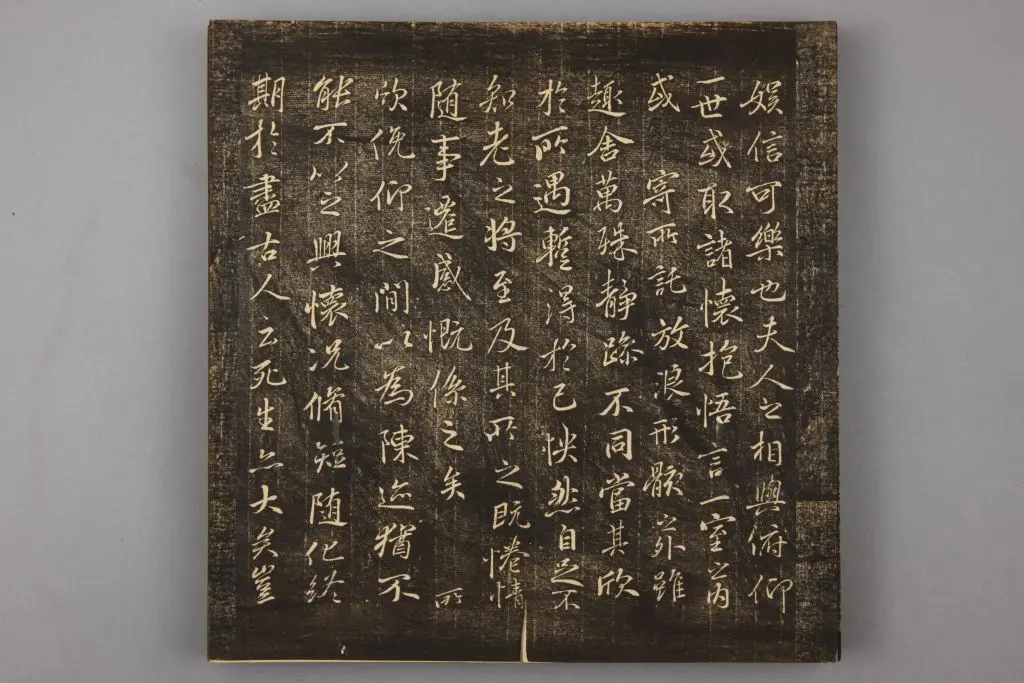 娛信可樂也夫人之相與俯仰
一世或取諸懷抱悟言一室之内
或寄所託放浪形骸之外雖
趣舍萬殊静躁不同當其欣
於所遇蹔得於己怏然自足不
知老之将至及其所之既惓情
随事遷感慨係之矣所
欣俛仰之閒以為陳迹猶不
能不以之興懷况脩短随化終
期於盡古人云死生亦大矣豈